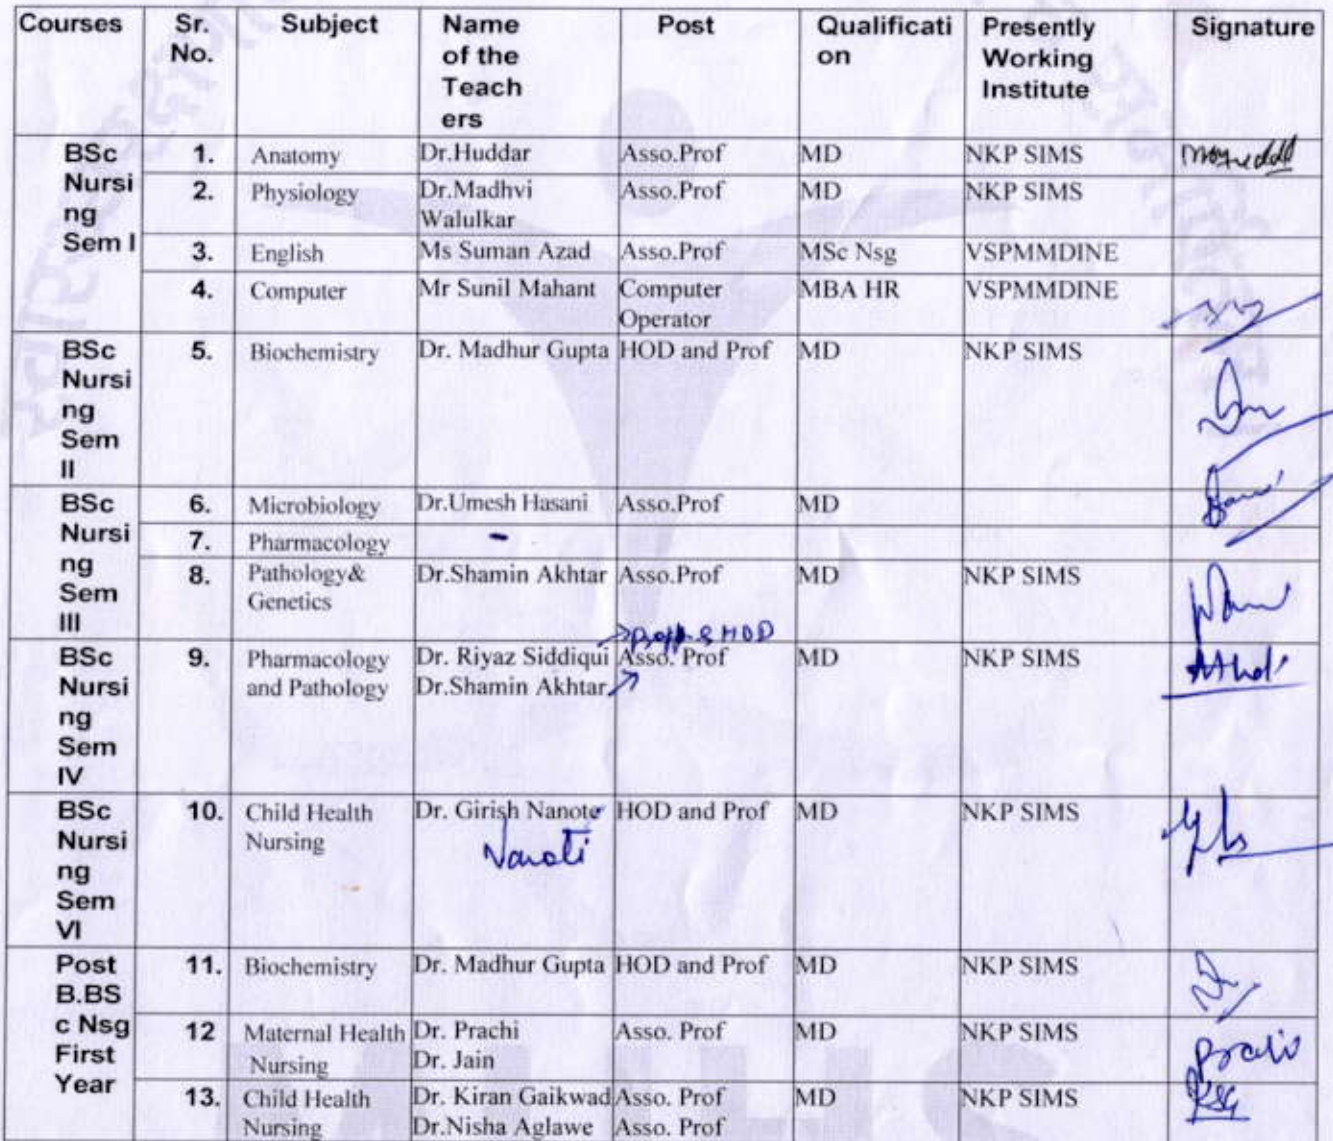 Courses Sr. No. Subject Name of the Teach ers Post Qualificati on Presently Working Institute Signature
BSc Nursi ng Sem I 1. Anatomy Dr.Huddar Asso.Prof MD NKP SIMS
2. Physiology Dr.Madhvi Walulkar Asso.Prof MD NKP SIMS
3. English Ms Suman Azad Asso.Prof MSc Nsg VSPMMDINE
4. Computer Mr Sunil Mahant Computer Operator MBA HR VSPMMDINE
BSc Nursi ng Sem II 5. Biochemistry Dr. Madhur Gupta HOD and Prof MD NKP SIMS
BSc Nursi ng Sem III 6. Microbiology Dr.Umesh Hasani Asso.Prof MD
7. Pharmacology -
8. Pathology& Genetics Dr.Shamin Akhtar Asso.Prof MD NKP SIMS
& HOD
BSc Nursi ng Sem IV 9. Pharmacology and Pathology Dr. Riyaz Siddiqui Dr.Shamin Akhtar Asso. Prof MD NKP SIMS
BSc Nursi ng Sem VI 10. Child Health Nursing Dr. Girish Nanote HOD and Prof MD NKP SIMS
Post B.BS c Nsg First Year 11. Biochemistry Dr. Madhur Gupta HOD and Prof MD NKP SIMS
12 Maternal Health Nursing Dr. Prachi Dr. Jain Asso. Prof MD NKP SIMS
13. Child Health Nursing Dr. Kiran Gaikwad Dr.Nisha Aglawe Asso. Prof Asso. Prof MD NKP SIMS